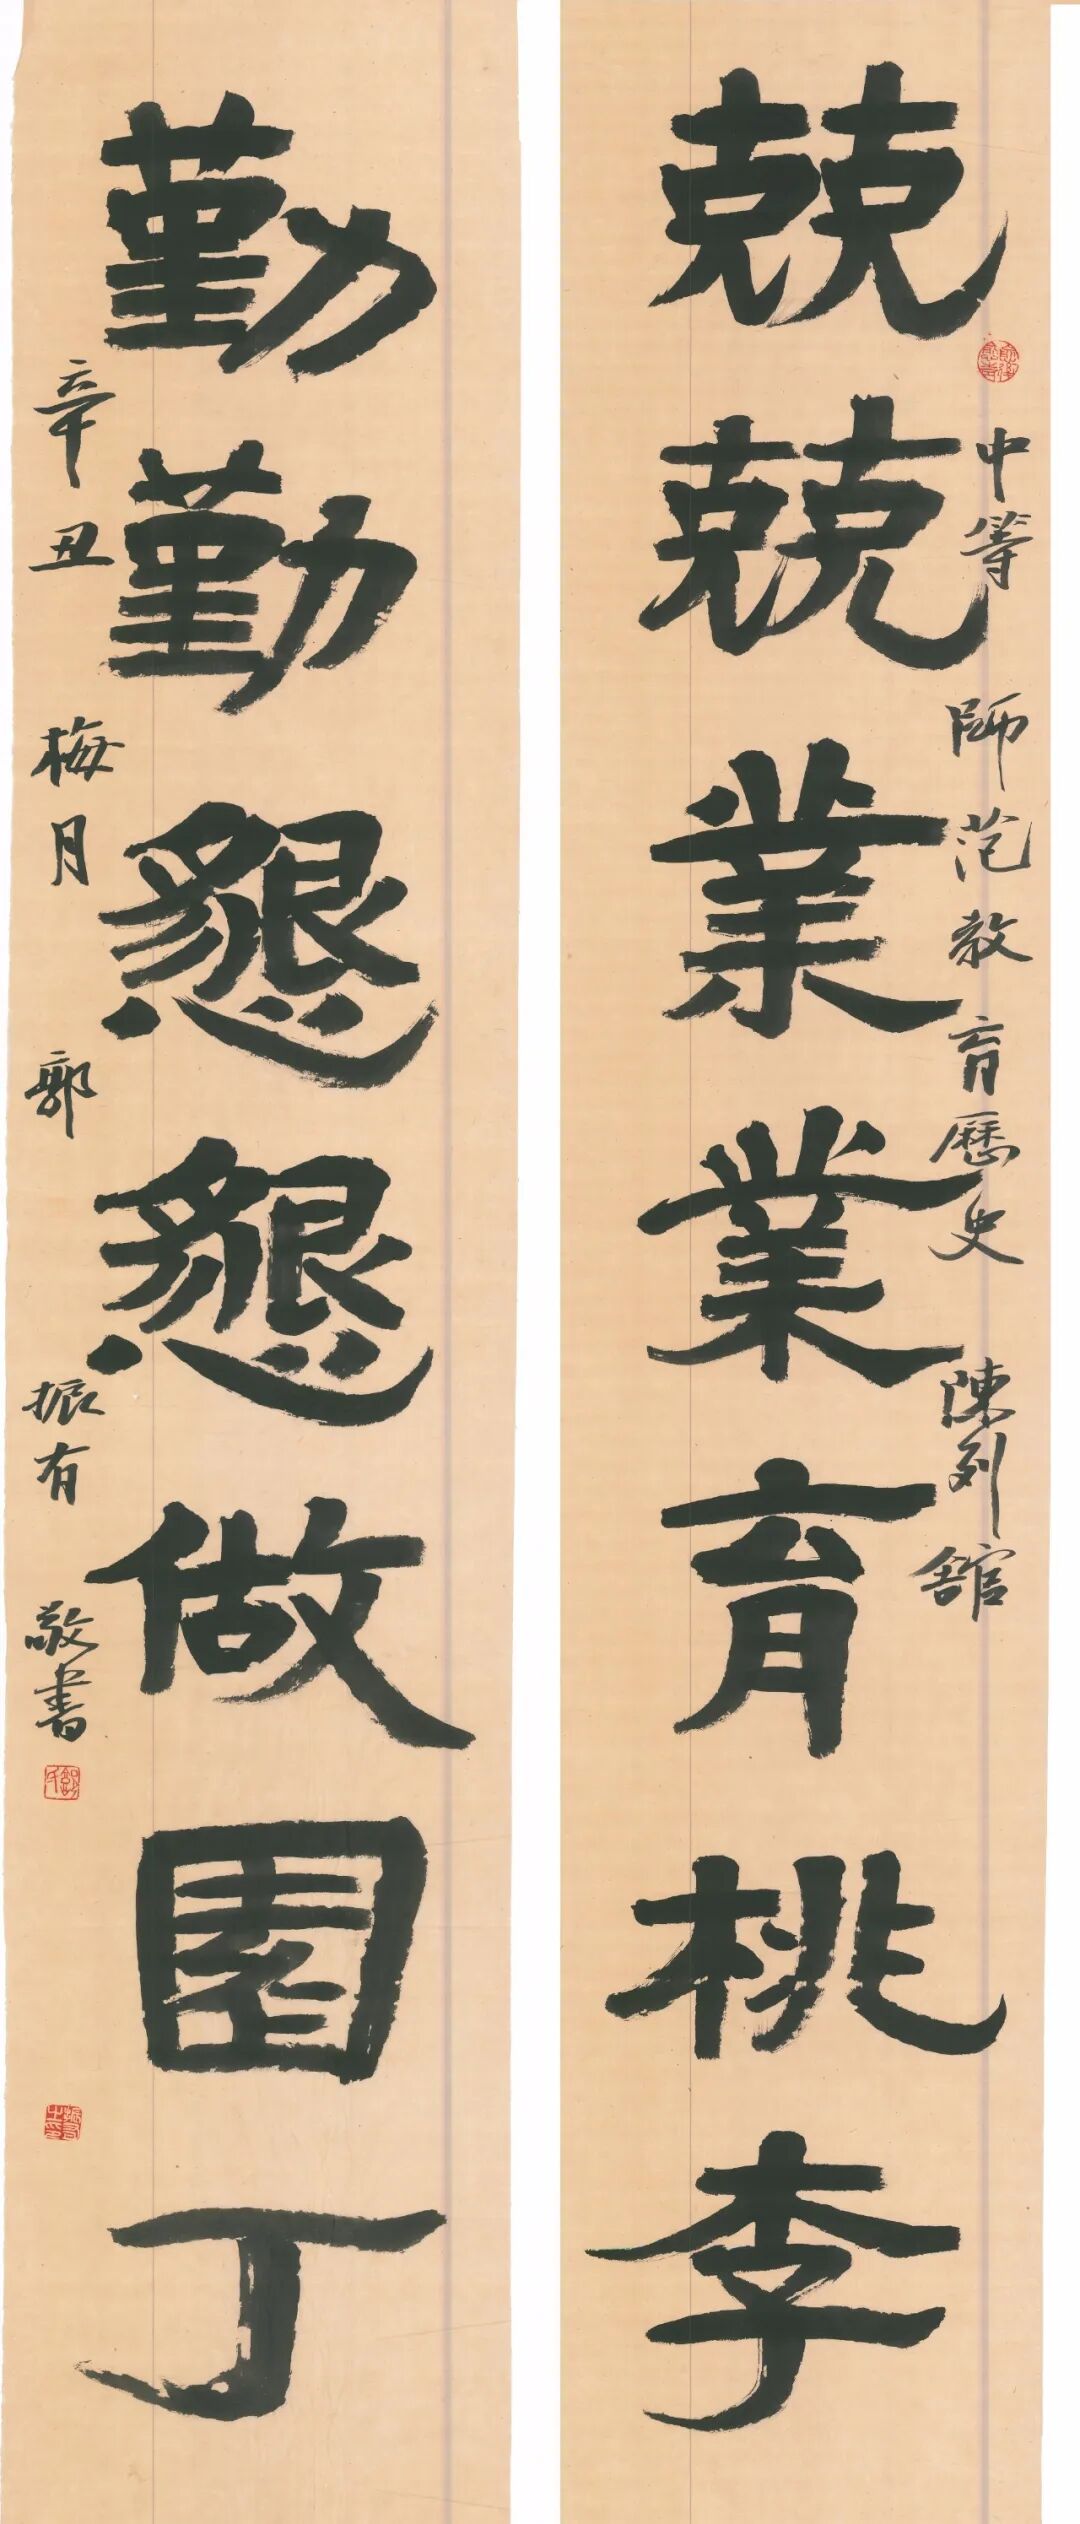 兢兢業業育桃李
中等師范教育歷史陳列舘
勤勤懇懇做園丁
辛丑梅月郭振有敬書